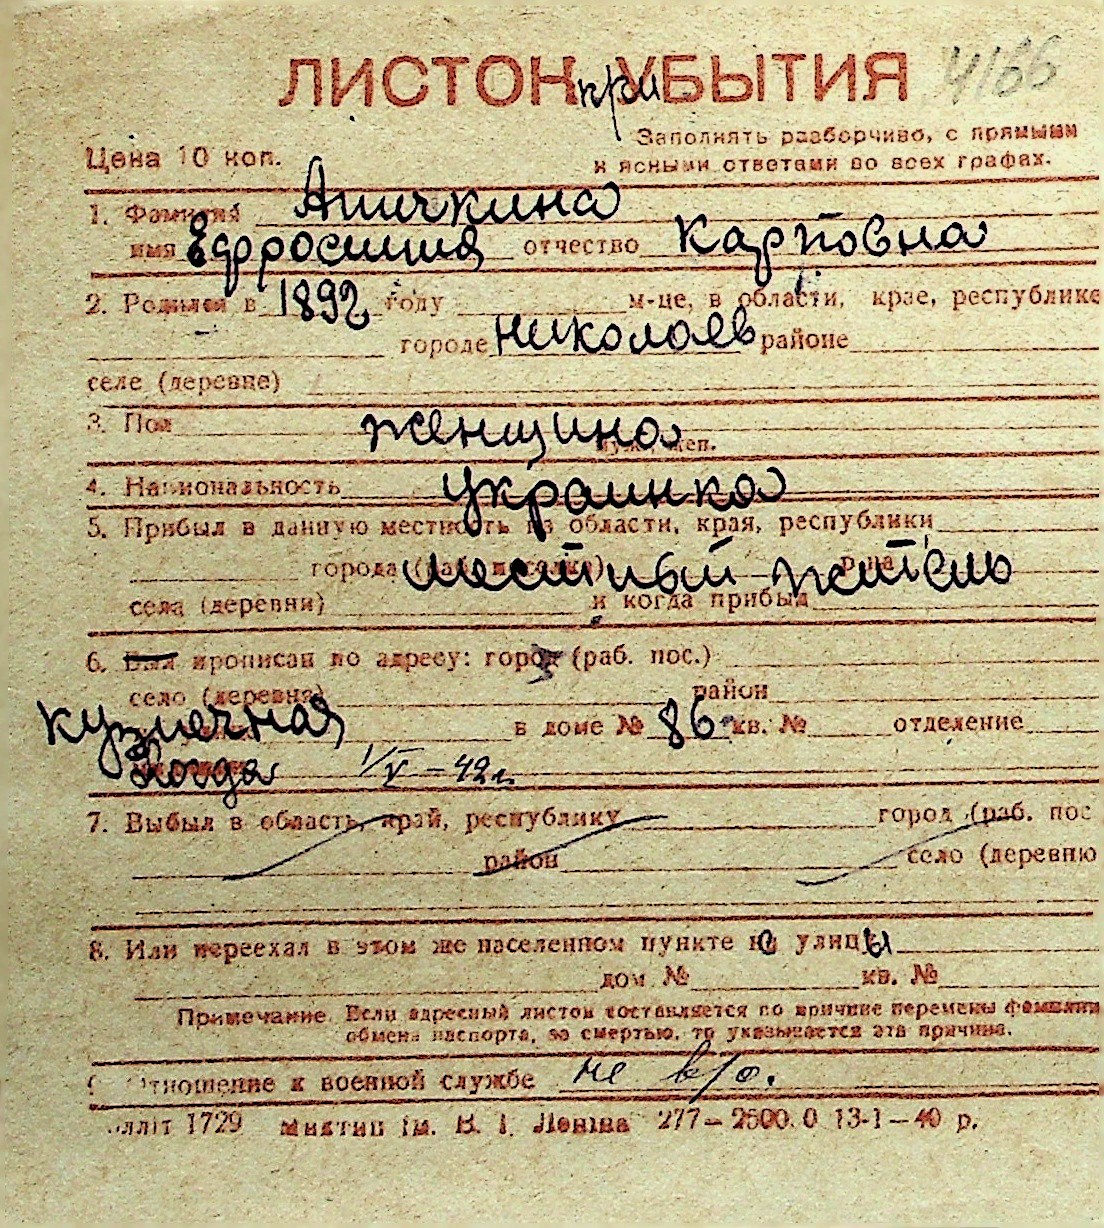 ЛИСТОК УБЫТИЯ
при
4166
Заполнять разборчиво, с прямыми
Цена 10 коп.
и ясными ответами во всех графах.
1. Фамилия Аничкина
имя Ефросиния отчество Карповна
2. Родился в 1892 году м-це, в области, крае, республике
городе Николаев районе
селе (деревне)
3. Пол женщина
муж., жен.
4. Национальность украинка
5. Прибыл в данную местность из области, края, республики
города (раб. поселка) местный житель р-на
села (деревни) и когда прибыл
6. Был прописан по адресу: город (раб. пос.)
село (деревня) район
Кузнечная в доме № 86 кв. № отделение
Когда 1/V – 42 г.
7. Выбыл в область, край, республику город (раб. пос
район село (деревню
8. Или переехал в этом же населенном пункте с улицы
дом № кв. №
Примечание. Если адресный листок составляется по причине перемены фамилии
обмена паспорта, за смертью, то указывается эта причина.
Отношение к военной службе не в/о.
лліт 1729 ім. В. І. Леніна 277–2500.0 13-1–40 р.